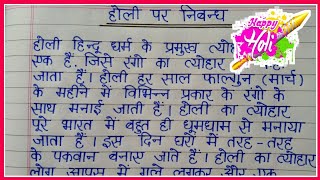 होली पर निबन्ध
Happy
Holi
होली हिन्दू धर्म के प्रमुख
एक है, जिसे रंगो का त्योहार
जाता है। होली हर साल फाल्गुन (मार्च)
के महीने में विभिन्न प्रकार के रंगो के
साथ मनाई जाती है। होली का त्योहार
पूरे भारत में बहुत ही धूमधाम से मनाया
जाता है। इस दिन घरों में तरह-तरह
के पकवान बनाए जाते हैं। होली का त्योहार
लोग आपस में गले लगकर और एक